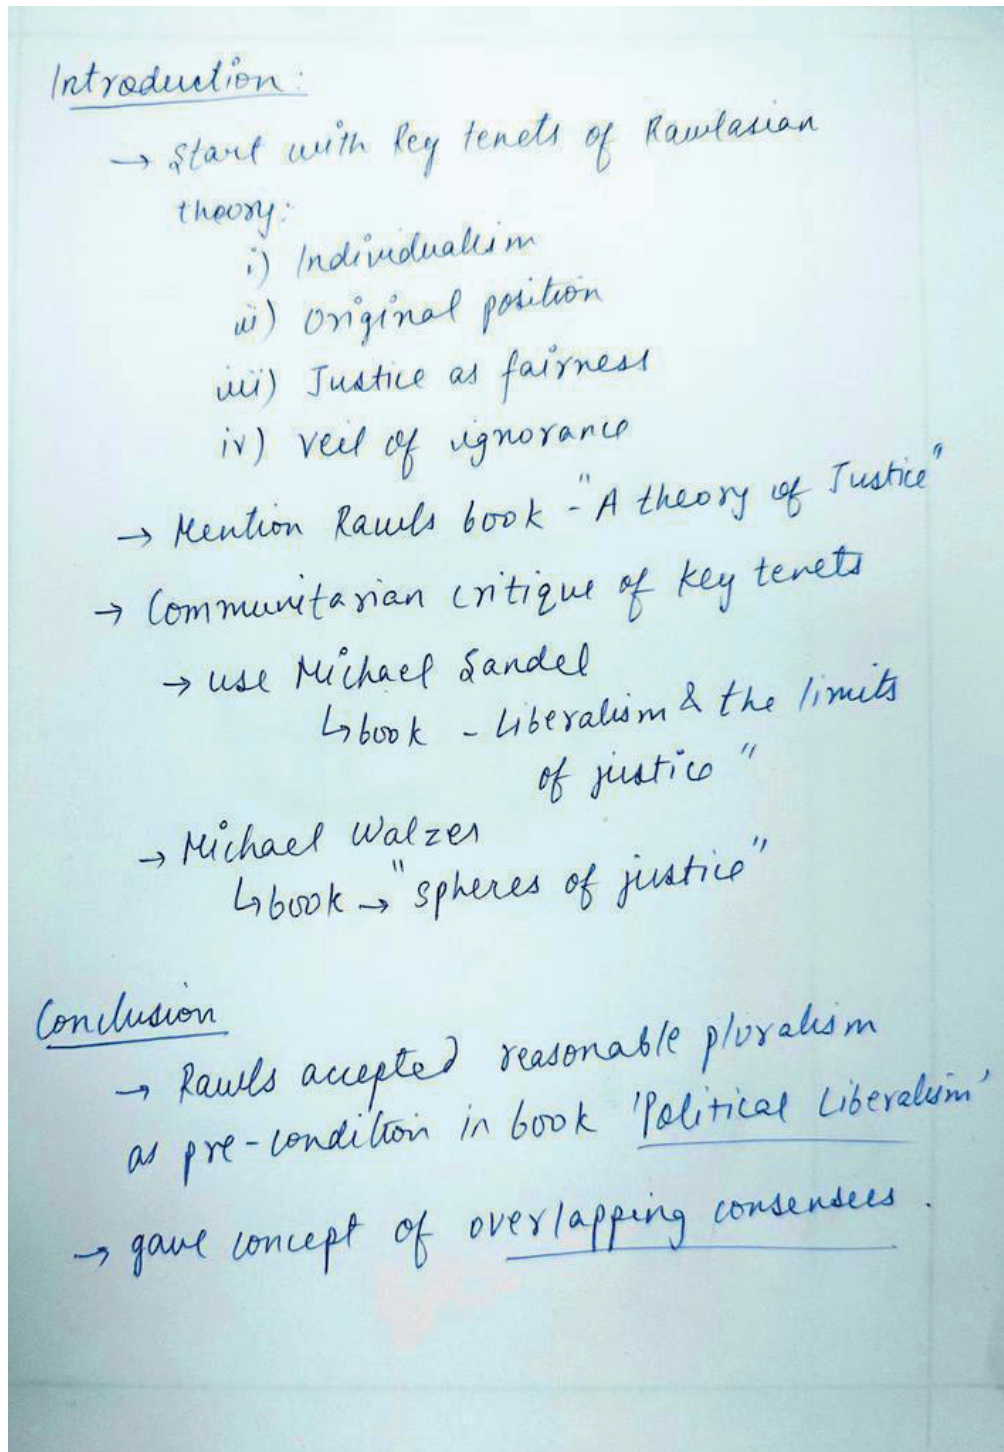 Introduction:
→ Start with key tenets of Rawlasian
theory:
i) Individualism
ii) Original position
iii) Justice as fairness
iv) Veil of ignorance
→ Mention Rawls book - "A theory of Justice"
→ Communitarian critique of key tenets
→ use Michael Sandel
↳ book - Liberalism & the limits
of justice"
→ Michael Walzer
↳ book → "spheres of justice"
Conclusion
→ Rawls accepted reasonable pluralism
as pre-condition in book 'Political Liberalism'
→ gave concept of overlapping consensus.